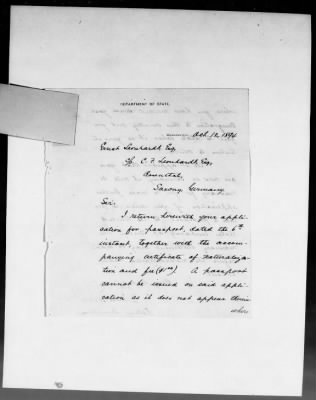 DEPARTMENT OF STATE,
WASHINGTON, Oct. 12, 1896
Ernst Leonhardt Esq.
c/o C. F. Leonhardt, Esq.,
Saxony, Germany
Sir:
I return herewith your appli-
cation for passport, dated the 6th
instant, together with the accom-
panying certificate of naturaliza-
tion and fee ($1.00). A passport
cannot be issued on said appli-
cation as it does not appear therein
where